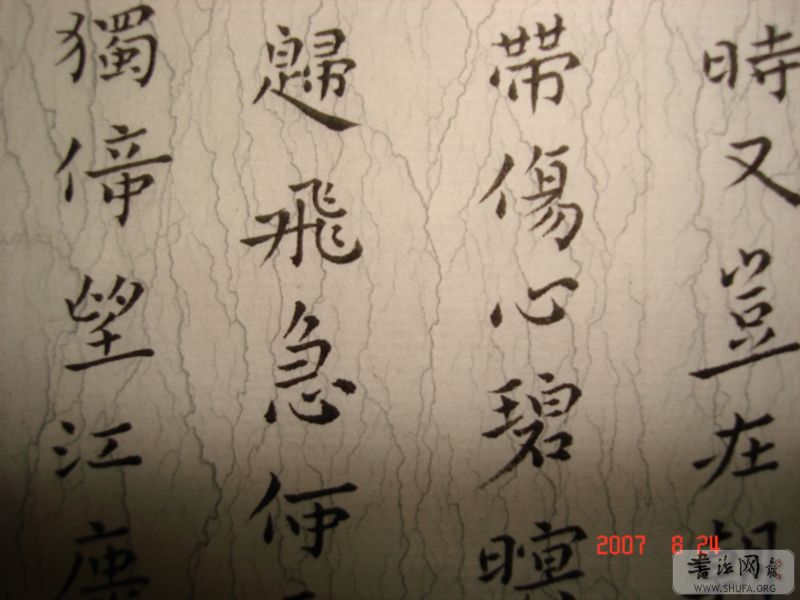 時又豈在
帶傷心碧暝
歸飛急何
獨倚望江
2007 8 24
書法网
WWW.SHUFA.ORG